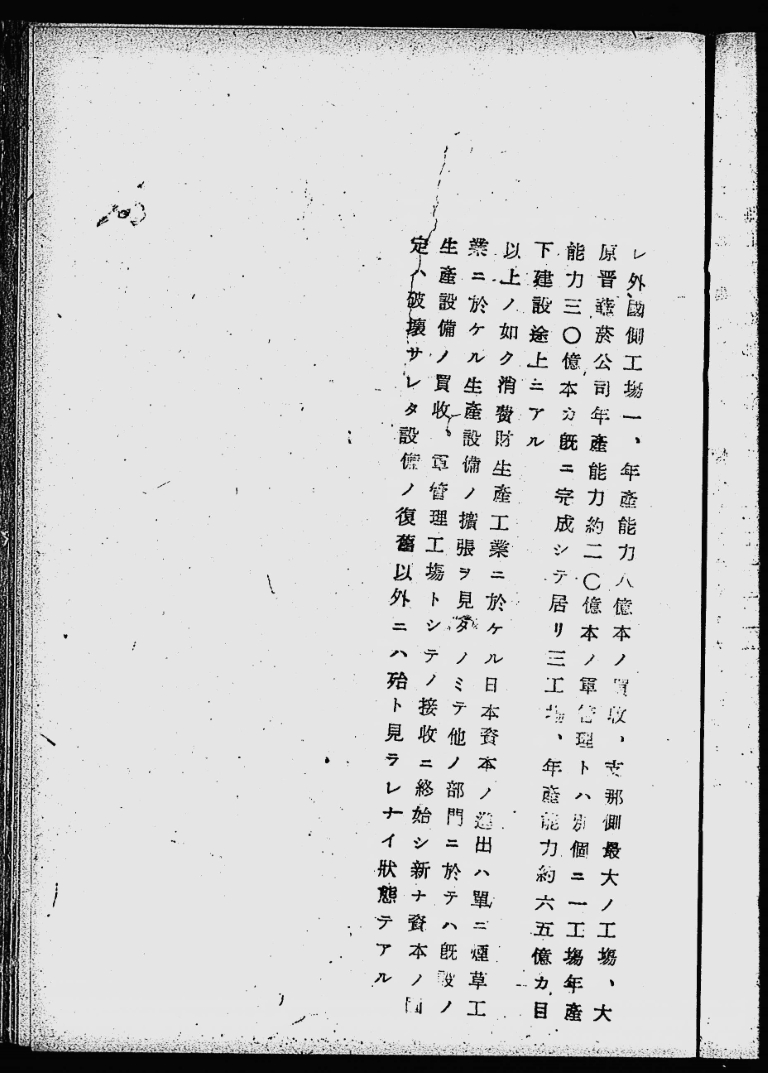 レ外國側工場一、年產能力八億本ノ買收、支那側最大ノ工場、大
原晋華菸公司年產能力約二〇億本ノ軍管理トハ別個ニ一工場年產
能力三〇億本カ既ニ完成シテ居リ三工場、年產能力約六五億カ目
下建設途上ニアル
以上ノ如ク消費財生產工業ニ於ケル日本資本ノ進出ハ單ニ煙草工
業ニ於ケル生產設備ノ擴張ヲ見タノミテ他ノ部門ニ於テハ既設ノ
生產設備ノ買收、軍管理工場トシテノ接收ニ終始シ新ナ資本ノ固
定ハ破壞サレタ設備ノ復舊以外ニハ殆ト見ラレナイ狀態テアル